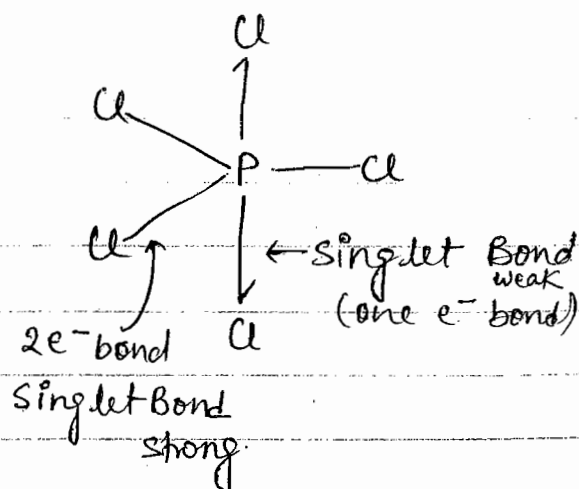 Cl
Cl
P Cl
Cl
← Singlet Bond
weak
(one e⁻ bond)
Cl
2e⁻ bond
Singlet Bond
strong.